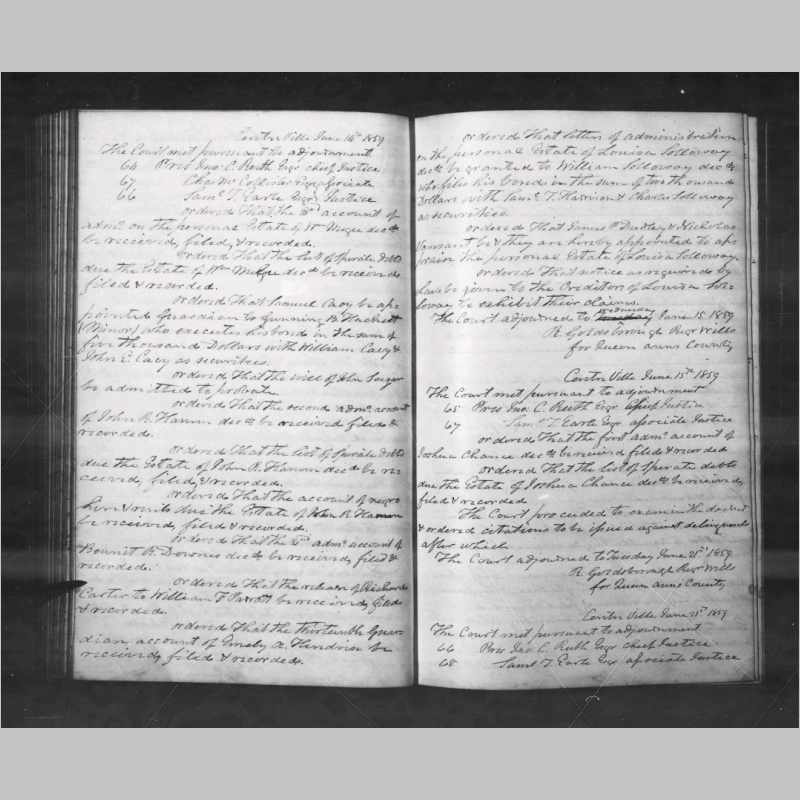 Centre Ville June 14th 1859
The Court met pursuant to adjournment
64 Pres Jno. C. Ruth Esqr chief Justice
67 Chas Mc Esqr associate
66 Saml T. Earle Esqr Justice
ordered that the account of
admr. on the personal Estate of Wm decd.
be received, filed, & recorded.
ordered that the list of Sperate Debts
due the Estate of Wm decd. be received
filed & recorded.
ordered that Samuel Cacy be ap=
pointed Guardian to Gunning B. Hackett
(Minor) who executes his bond in the sum of
five thousand Dollars with William Cacy &
John E. Cacy as securities.
ordered that the will of John
be admitted to probate.
ordered that the second admr. account
of John R. Hamm decd. be received filed &
recorded.
ordered that the list of Sperate Debts
due the Estate of John R. Hamm decd. be re=
ceived, filed, & recorded.
ordered that the account of negro
hire & rents due the Estate of John R. Hamm
be received, filed & recorded.
ordered that the admr. account of
Bennet R. Downes decd. be received, filed &
recorded.
ordered that the release of
Carter to William F. Parrott be received, filed
& recorded.
ordered that the thirteenth Guar=
dian account of A. Hendrix be
received, filed & recorded.
ordered that letters of administration
on the personal Estate of Louisa Solloway
decd. be granted to William Solloway
who files his bond in the sum of two thousand
Dollars with Saml. T. Harrison & Charles Solloway
as securities.
ordered that James P. Dudley & Nicholas
be & they are hereby appointed to ap=
praise the personal Estate of Louisa Solloway.
ordered that notice as required by
law be given to the Creditors of Louisa Sol=
loway to exhibit their claims.
The Court adjourned to Wednesday June 15 1859
R. Goldsborough Regr Wills
for Queen anns County
Centre Ville June 15th 1859
The Court met pursuant to adjournment
65 Pres Jno. C. Ruth Esqr Chief Justice
67 Saml T. Earle Esqr associate Justice
ordered that the first admr. account of
Joshua Chance decd. be received filed & recorded
ordered that the list of Sperate debts
due the Estate of Joshua Chance decd. be received,
filed & recorded
The Court proceeded to examine the docket
& ordered citations to be issued against delinquents
after which
The Court adjourned to Tuesday June 21st 1859
R. Goldsborough Regr Wills
for Queen anns County
Centre Ville June 21st 1859
The Court met pursuant to adjournment
66 Pres Jno. C. Ruth Esqr chief Justice
68 Saml T. Earle Esqr associate Justice